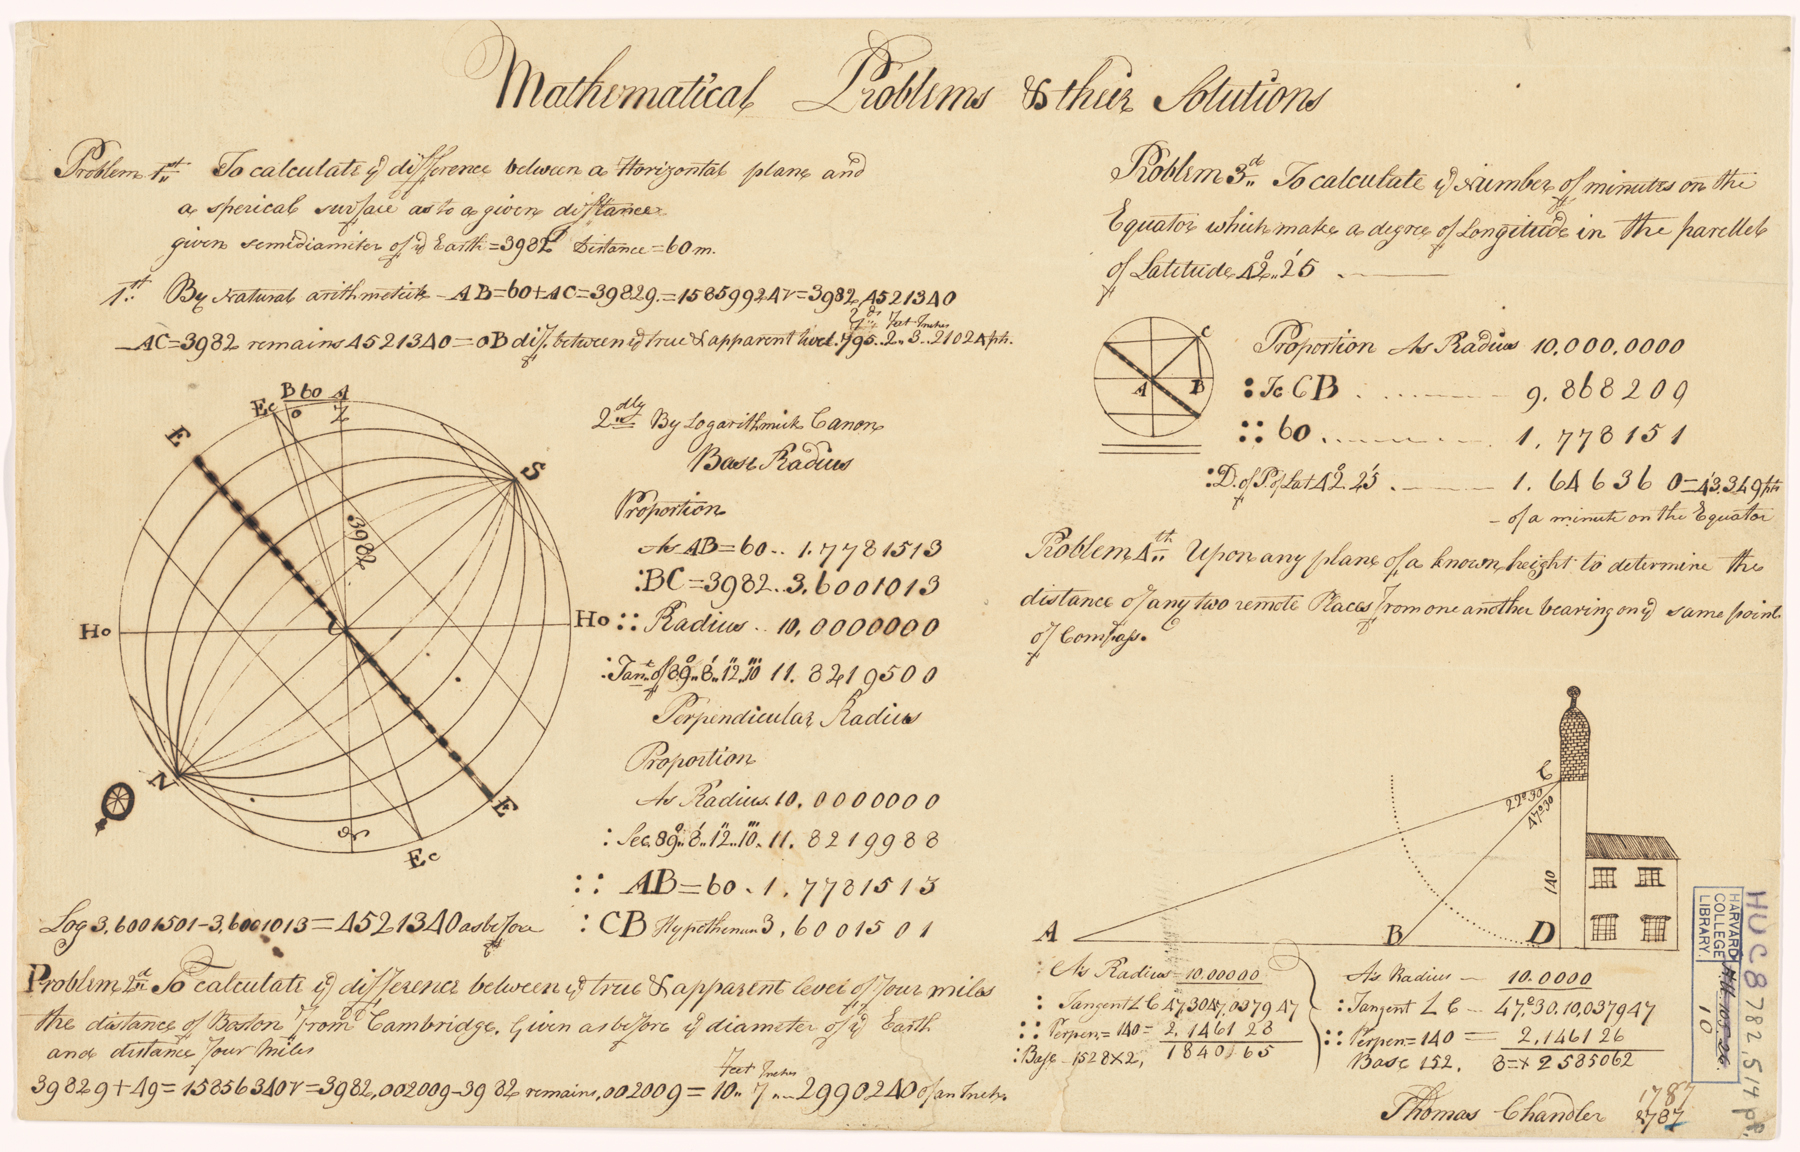 Mathematical Problems & their Solutions
Problem 1st To calculate ye difference between a Horizontal plane and
a sperical surface as to a given distance
given semidiameter of ye Earth = 3982 Distance = 60 m.
1st By Natural arithmetick - AB=60+AC=39829.=15859924r=3982,4521340
Yds Feet Inches
AC=3982 remains 4521340=oB diff. between ye true & apparent level. 795..2..3..21024 pts.
B 60 A
Ec o Z
E
S
3982
Ho
Ho
N
E
Ec
2dly By Logarithmick Canon
Base Radius
Proportion
As AB=60.. 1.7781513
:BC=3982..3,6001013
:: Radius.. 10,0000000
:Tant of 89°..8'..12''..10''' 11.8219500
Perpendicular Radius
Proportion
As Radius. 10,0000000
: Sec. 89°..8'..12''..10'''. 11.8219988
:: AB=60.1.7781513
: CB Hypothenun 3,6001501
Log 3,6001501-3,6001013=4521340 as before
Problem 2d To calculate ye difference between ye true & apparent level of four miles
the distance of Boston from Cambridge. Given as before ye diameter of ye Earth
and distance four miles
Feet Inches
39829+49=15856340r=3982,002009-3982 remains,002009=10..7..-2990240 of an Inch.
Problem 3d.. To calculate ye Number of minutes on the
Equator which make a degree of Longitude in the parellel
of Latitude 42°..25'
C
A B
Proportion As Radius 10,000,0000
: To CB 9.868209
:: 60 1.778151
:D. of P. of Lat 42°.25' 1.646360=43.349 pts
- of a minute on the Equator
Problem 4th.. Upon any plane of a known height to determine the
distance of any two remote Places from one another bearing on ye same point
of Compass.
C
22°30
47°30
140
A B D
: As Radius 10.00000
: Tangent L C 47,3047,037947
:: Perpen.=140= 2,146128
: Base - 1528×2, 1840165
As Radius - 10.0000
: Tangent L C - 47°.30.10,037947
:: Perpen=140 = 2,146126
Base 152. 8=+2585062
Thomas Chandler 1787
1787
HARVARD
COLLEGE
LIBRARY
10
HUC 8782.514 pf.